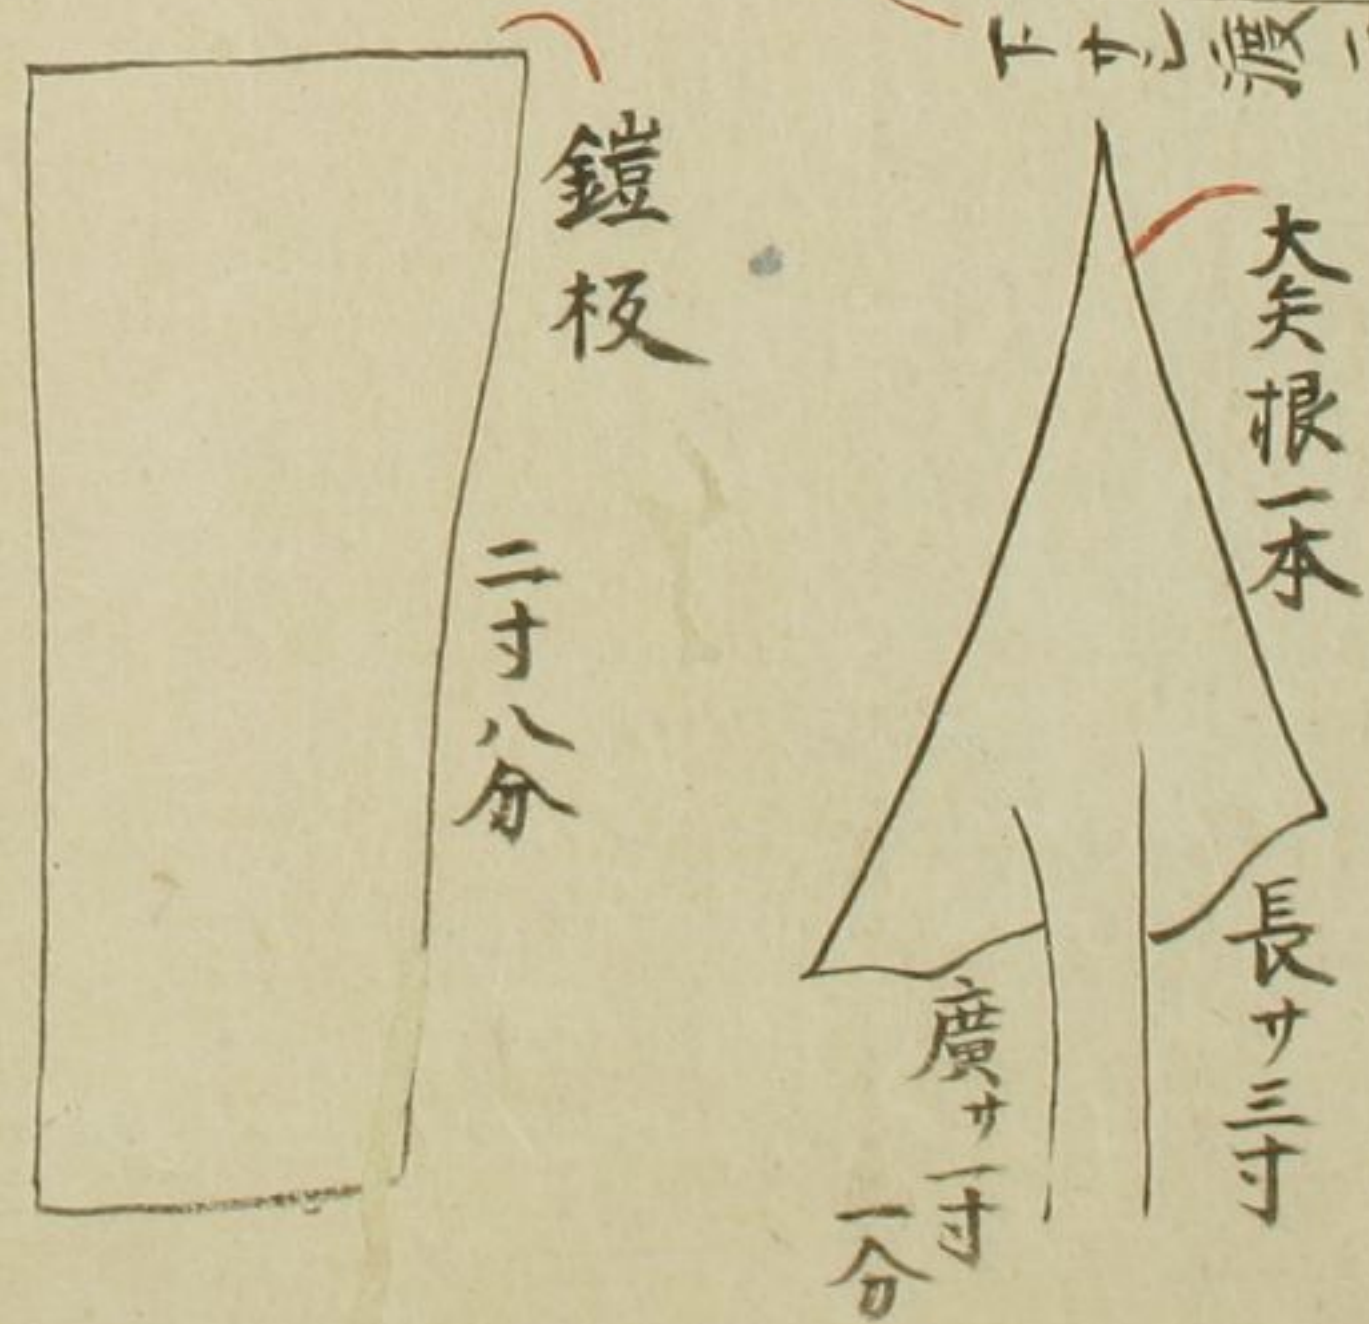 下サし渡
大矢根一本
長サ三寸
廣サ一寸
一分
鎧板
二寸八分